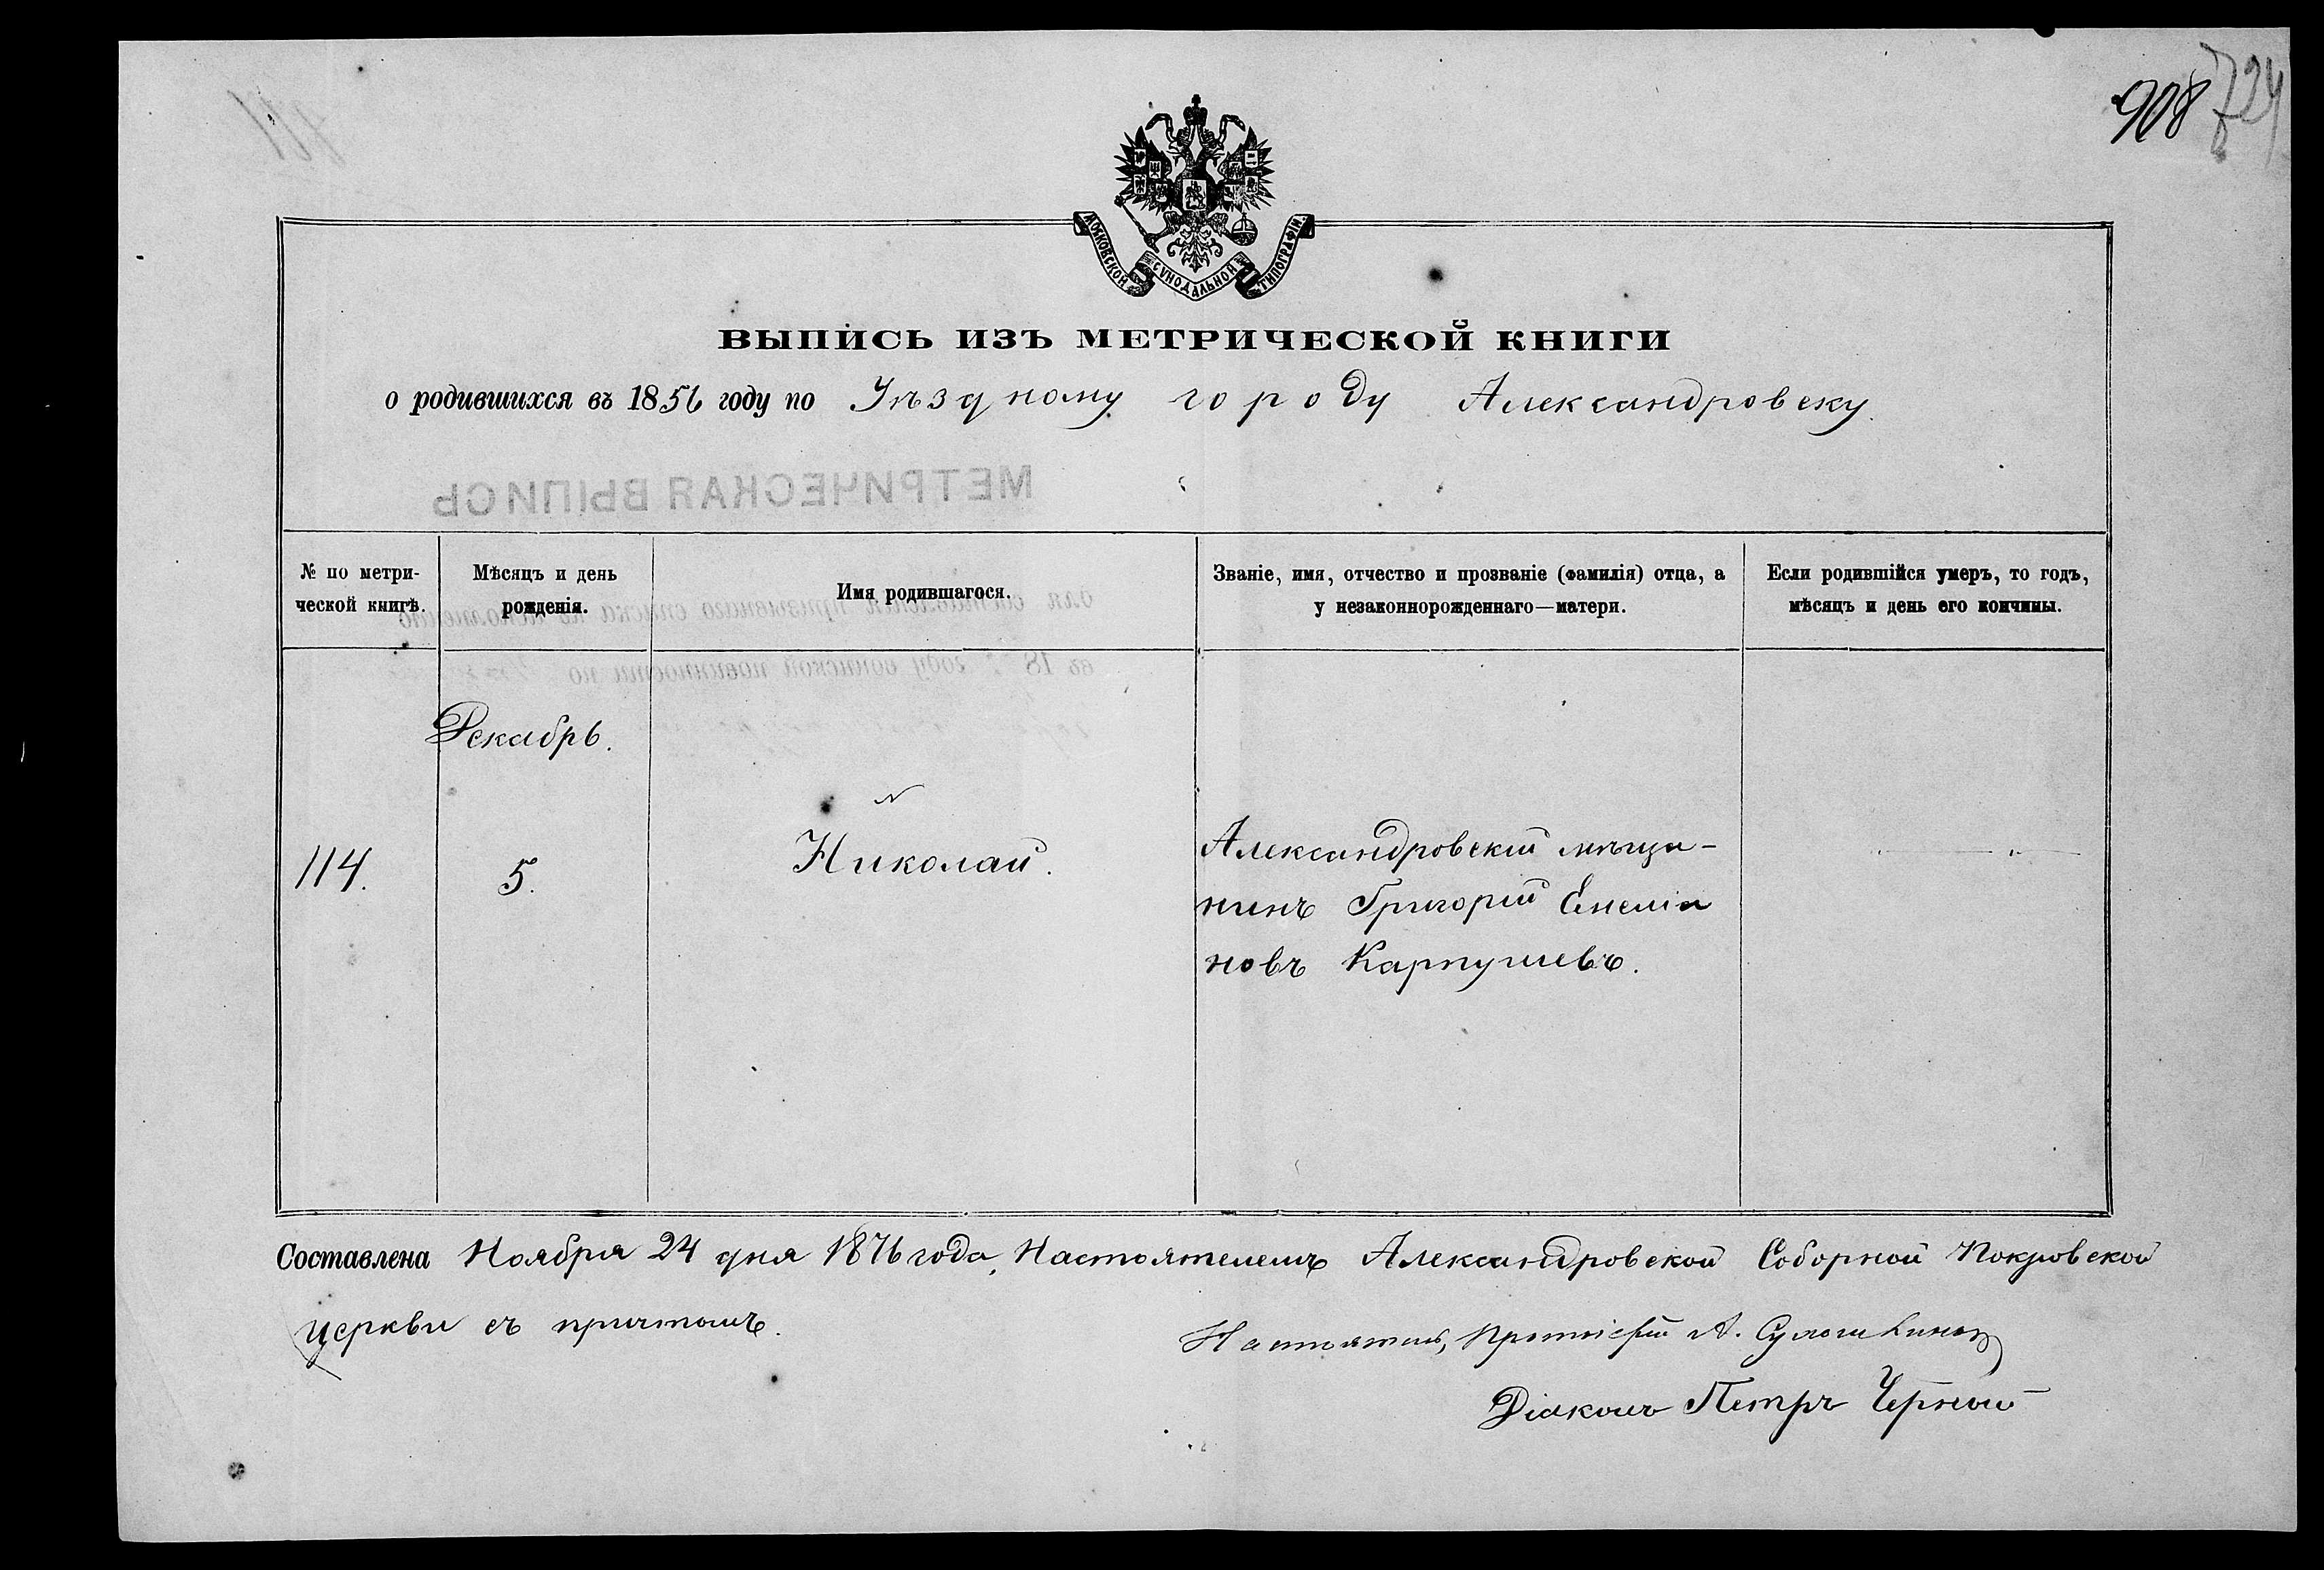 908 724
МОСКОВСКОЙ СѴНОДАЛЬНОЙ ТИПОГРАФІИ.
ВЫПИСЬ ИЗЪ МЕТРИЧЕСКОЙ КНИГИ
о родившихся въ 1856 году по Уѣздному городу Александровску.
МЕТРИЧЕСКАЯ ВЫПИСЬ
№ по метри-
ческой книгѣ.
Мѣсяцъ и день
рожденія.
Имя родившагося.
Званіе, имя, отчество и прозваніе (фамилія) отца, а
у незаконнорожденнаго—матери.
Если родившійся умеръ, то годъ,
мѣсяцъ и день его кончины.
для составленія призывнаго списка къ исполненію
въ 18 году воинской повинности по
Декабрь.
114.
5.
Николай.
Александровскій мѣща-
нинъ Григорій Емеліа
новъ Карпушевъ.
Составлена Ноября 24 дня 1876 года, Настоятелемъ Александровской Соборной Покровской
церкви съ причтомъ.
Настоятель, Протоіерей А.
Діаконъ Петръ Черной